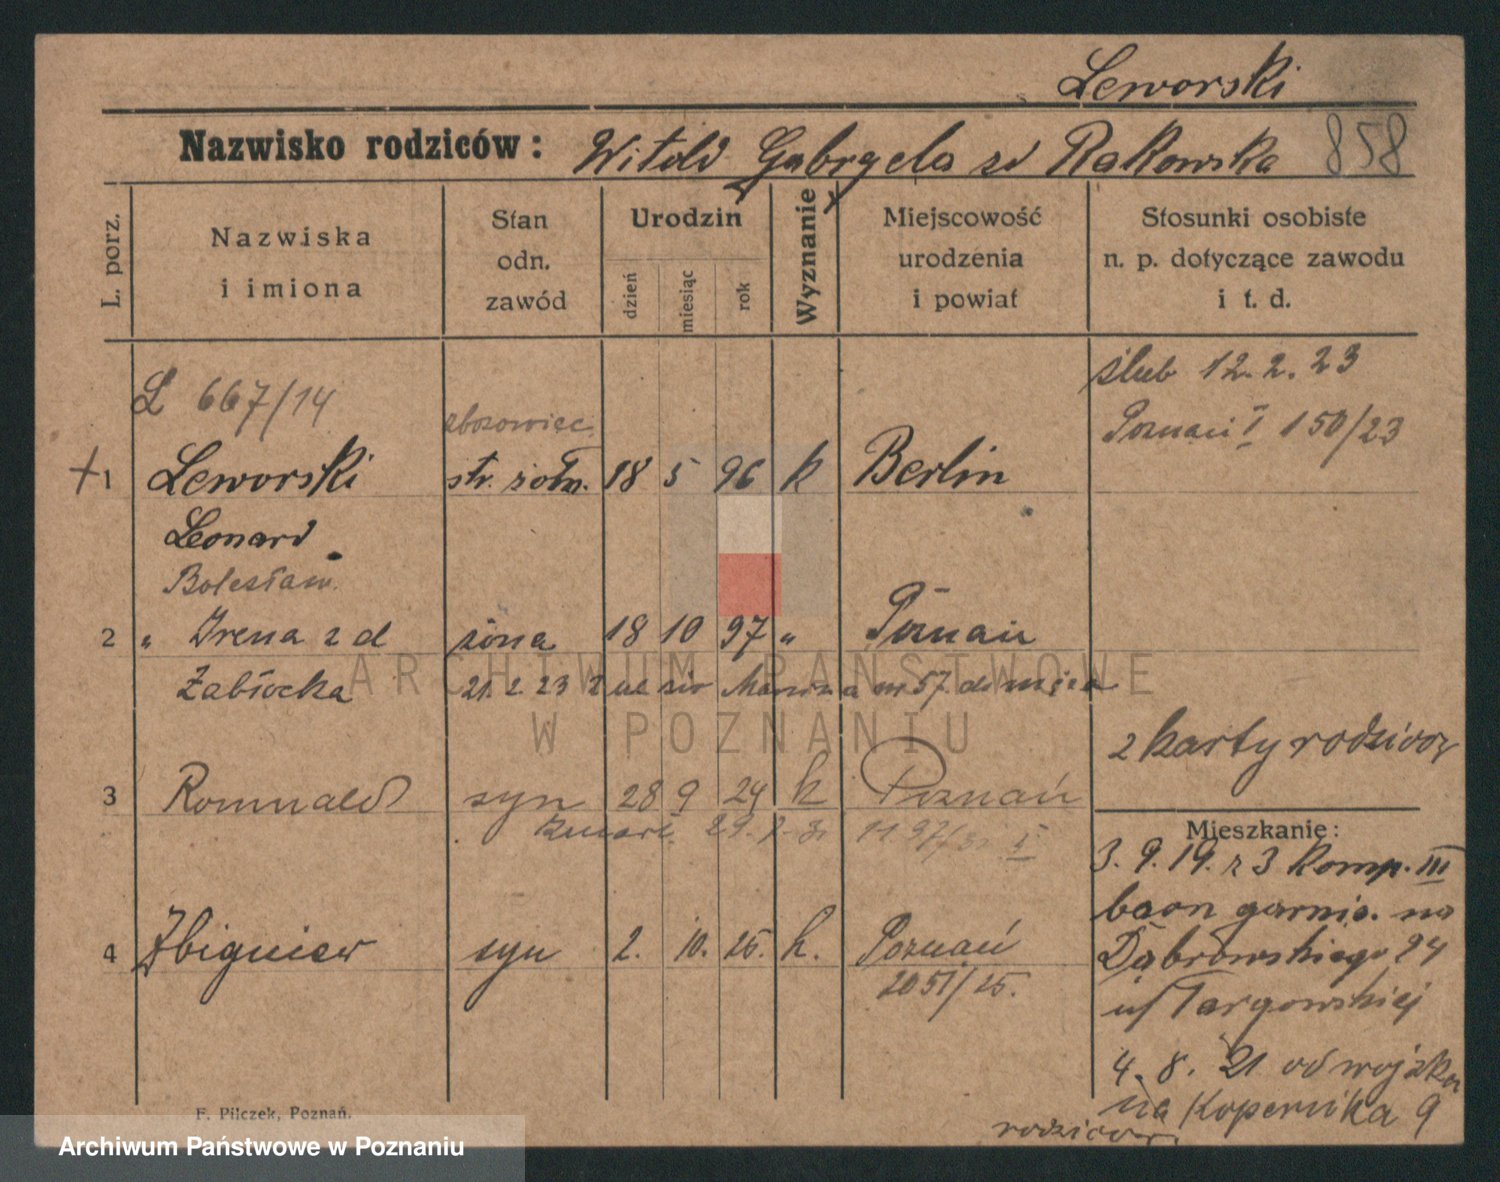 Leworski
Nazwisko rodziców: Witold Gabryela zd Rakowska 858
L. porz.
Nazwiska i imiona
Stan odn. zawód
Urodzin
dzień miesiąc rok
Wyznanie
Miejscowość urodzenia i powiat
Stosunki osobiste n. p. dotyczące zawodu i t. d.
L 667/14
ślub 12. 2. 23
Poznań I 150/23
zbożowiec
+ 1 Leworski str. żołn. 18 5 96 k Berlin
Leonard
Bolesław
2 " Irena z d żona 18 10 97 " Poznań
Żabłocka 21. 2. 23 57
2 karty rodziców
3 Romuald syn 28 9 24 k Poznań
29. 7. 31 1197/31 I
4 Zbigniew syn 2. 10. 25. k. Poznań
2051/25.
Mieszkanie:
3. 9. 19. z 3 komp. III
baon garniz. na
Dąbrowskiego 24
Targowskiej
4. 8. 21 od wojska
na Kopernika 9
rodziców
F. Pilczek, Poznań.
ARCHIWUM PAŃSTWOWE
W POZNANIU
Archiwum Państwowe w Poznaniu